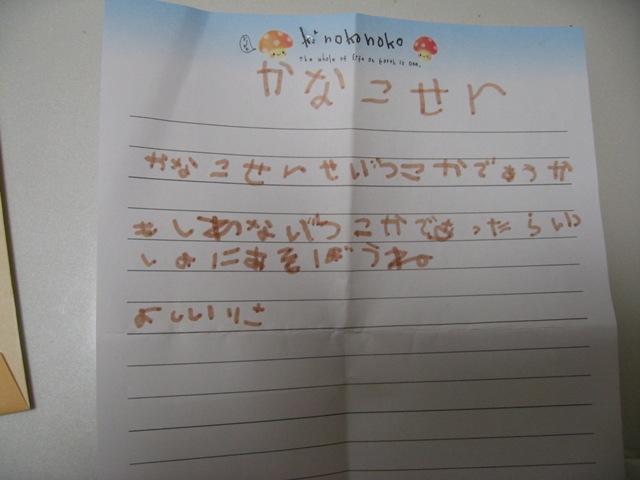 kinokonoko
The whole of life on earth is one.
かなこせん
かなこせんせいつこかであうか
もしわないつこかであったらいつ
しよにあそぼうね。
よしいりさ